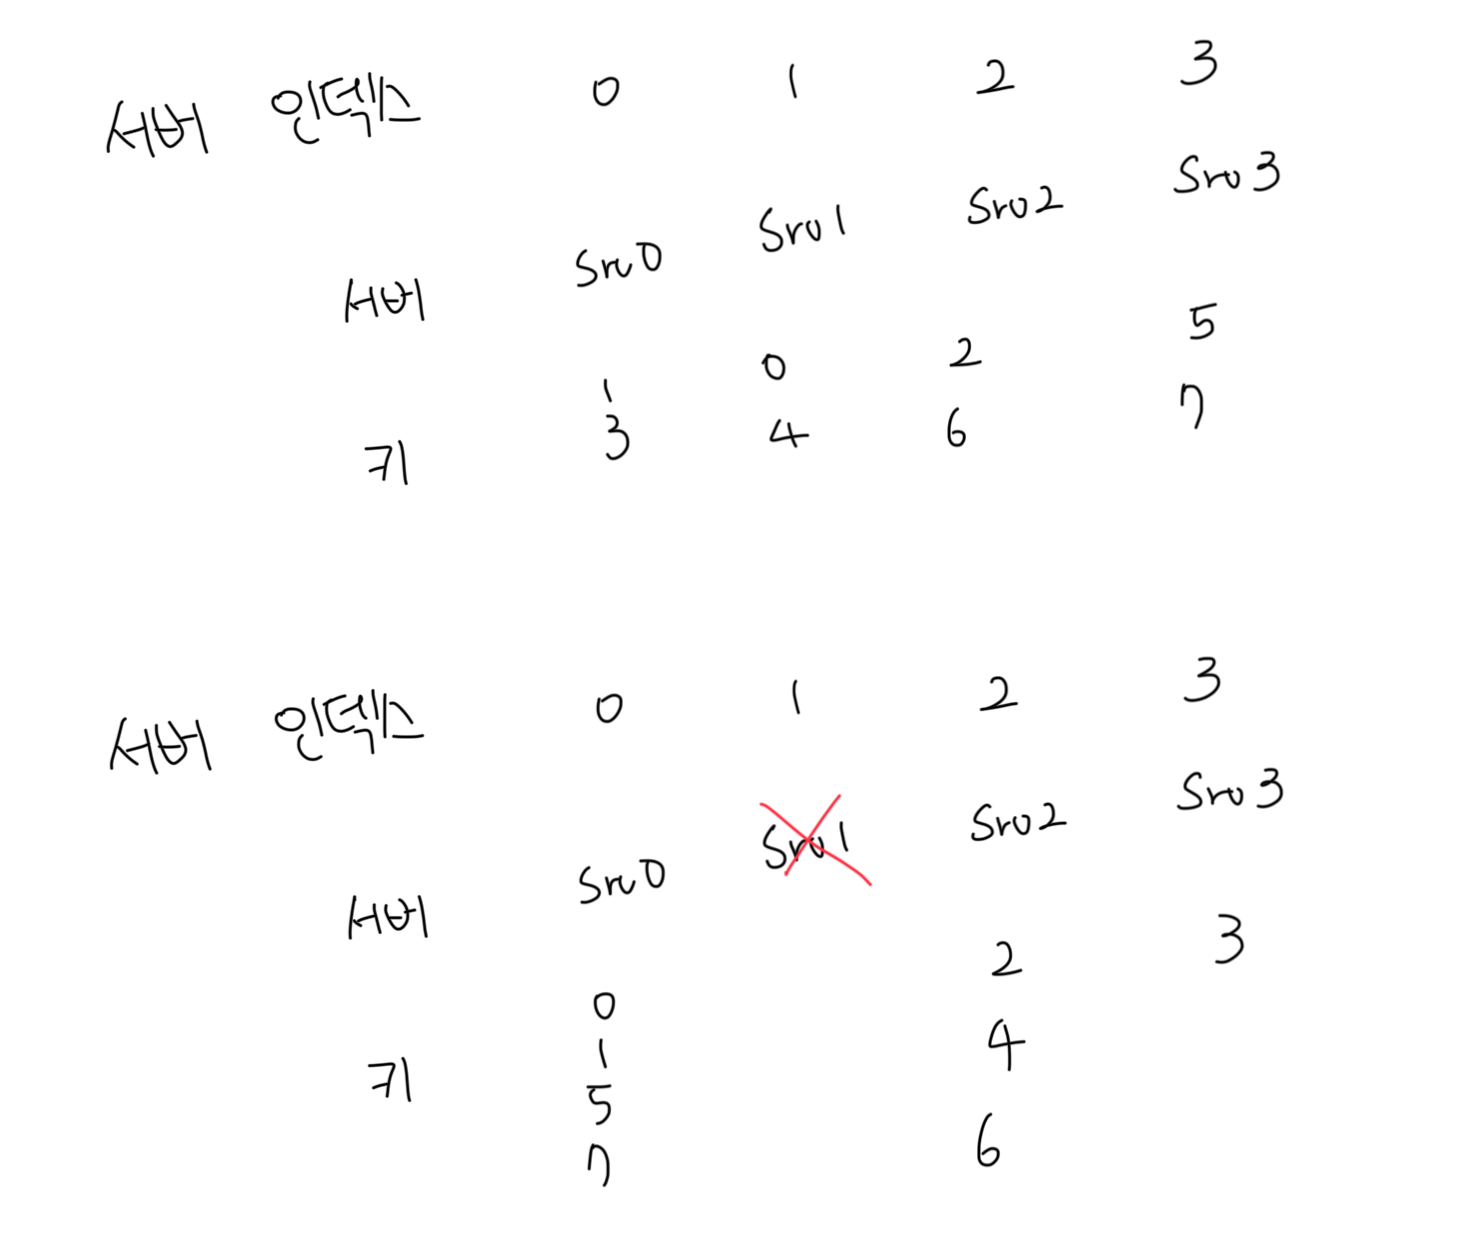 서버 인덱스 0 1 2 3
서버 Srv0 Srv1 Srv2 Srv3
키 1 0 2 5
3 4 6 7
서버 인덱스 0 1 2 3
서버 Srv0 Srv1 Srv2 Srv3
키 0 2 3
1 4
5 6
7